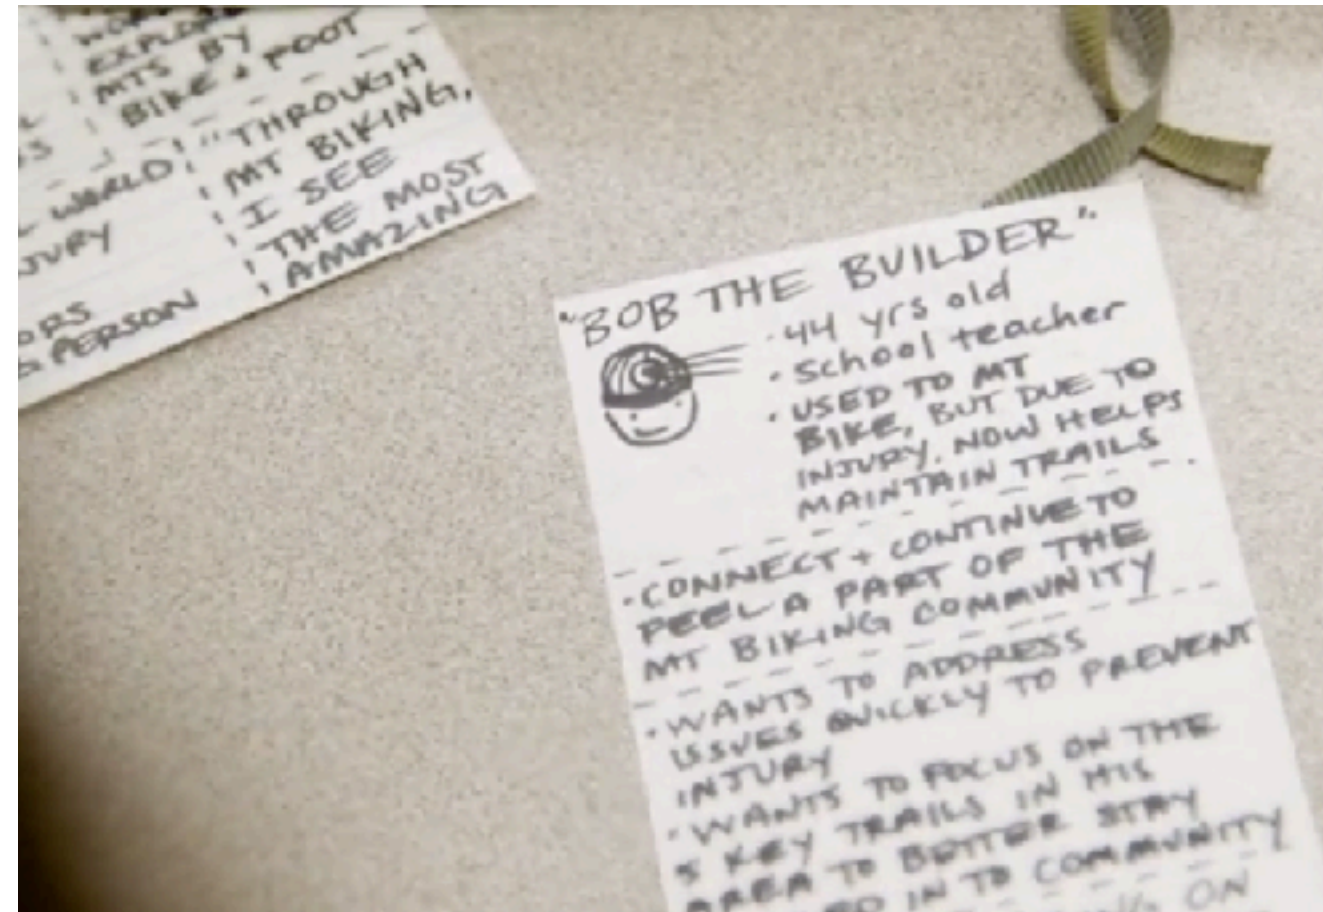 EXPLORE
MTS BY
BIKE + FOOT
WORLD
INJURY
PERSON
"THROUGH
MT BIKING,
I SEE
THE MOST
AMAZING
"BOB THE BUILDER"
· 44 yrs old
· School teacher
· USED TO MT
BIKE, BUT DUE TO
INJURY, NOW HELPS
MAINTAIN TRAILS
· CONNECT + CONTINUE TO
FEEL A PART OF THE
MT BIKING COMMUNITY
· WANTS TO ADDRESS
ISSUES QUICKLY TO PREVENT
INJURY
· WANTS TO FOCUS ON THE
5 KEY TRAILS IN HIS
AREA TO BETTER STAY
IN TO COMMUNITY
ON